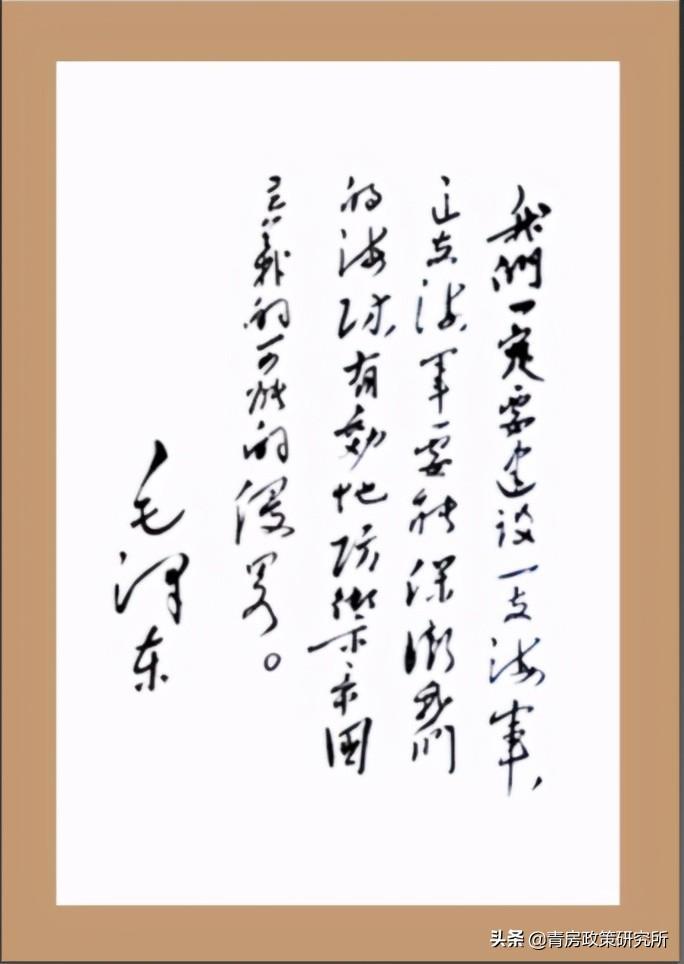 我們一定要建设一支海軍,
这支海軍要能保衛我們
的海防,有効地防禦帝國
主義的可能的侵畧。
毛泽东
头条 @青房政策研究所